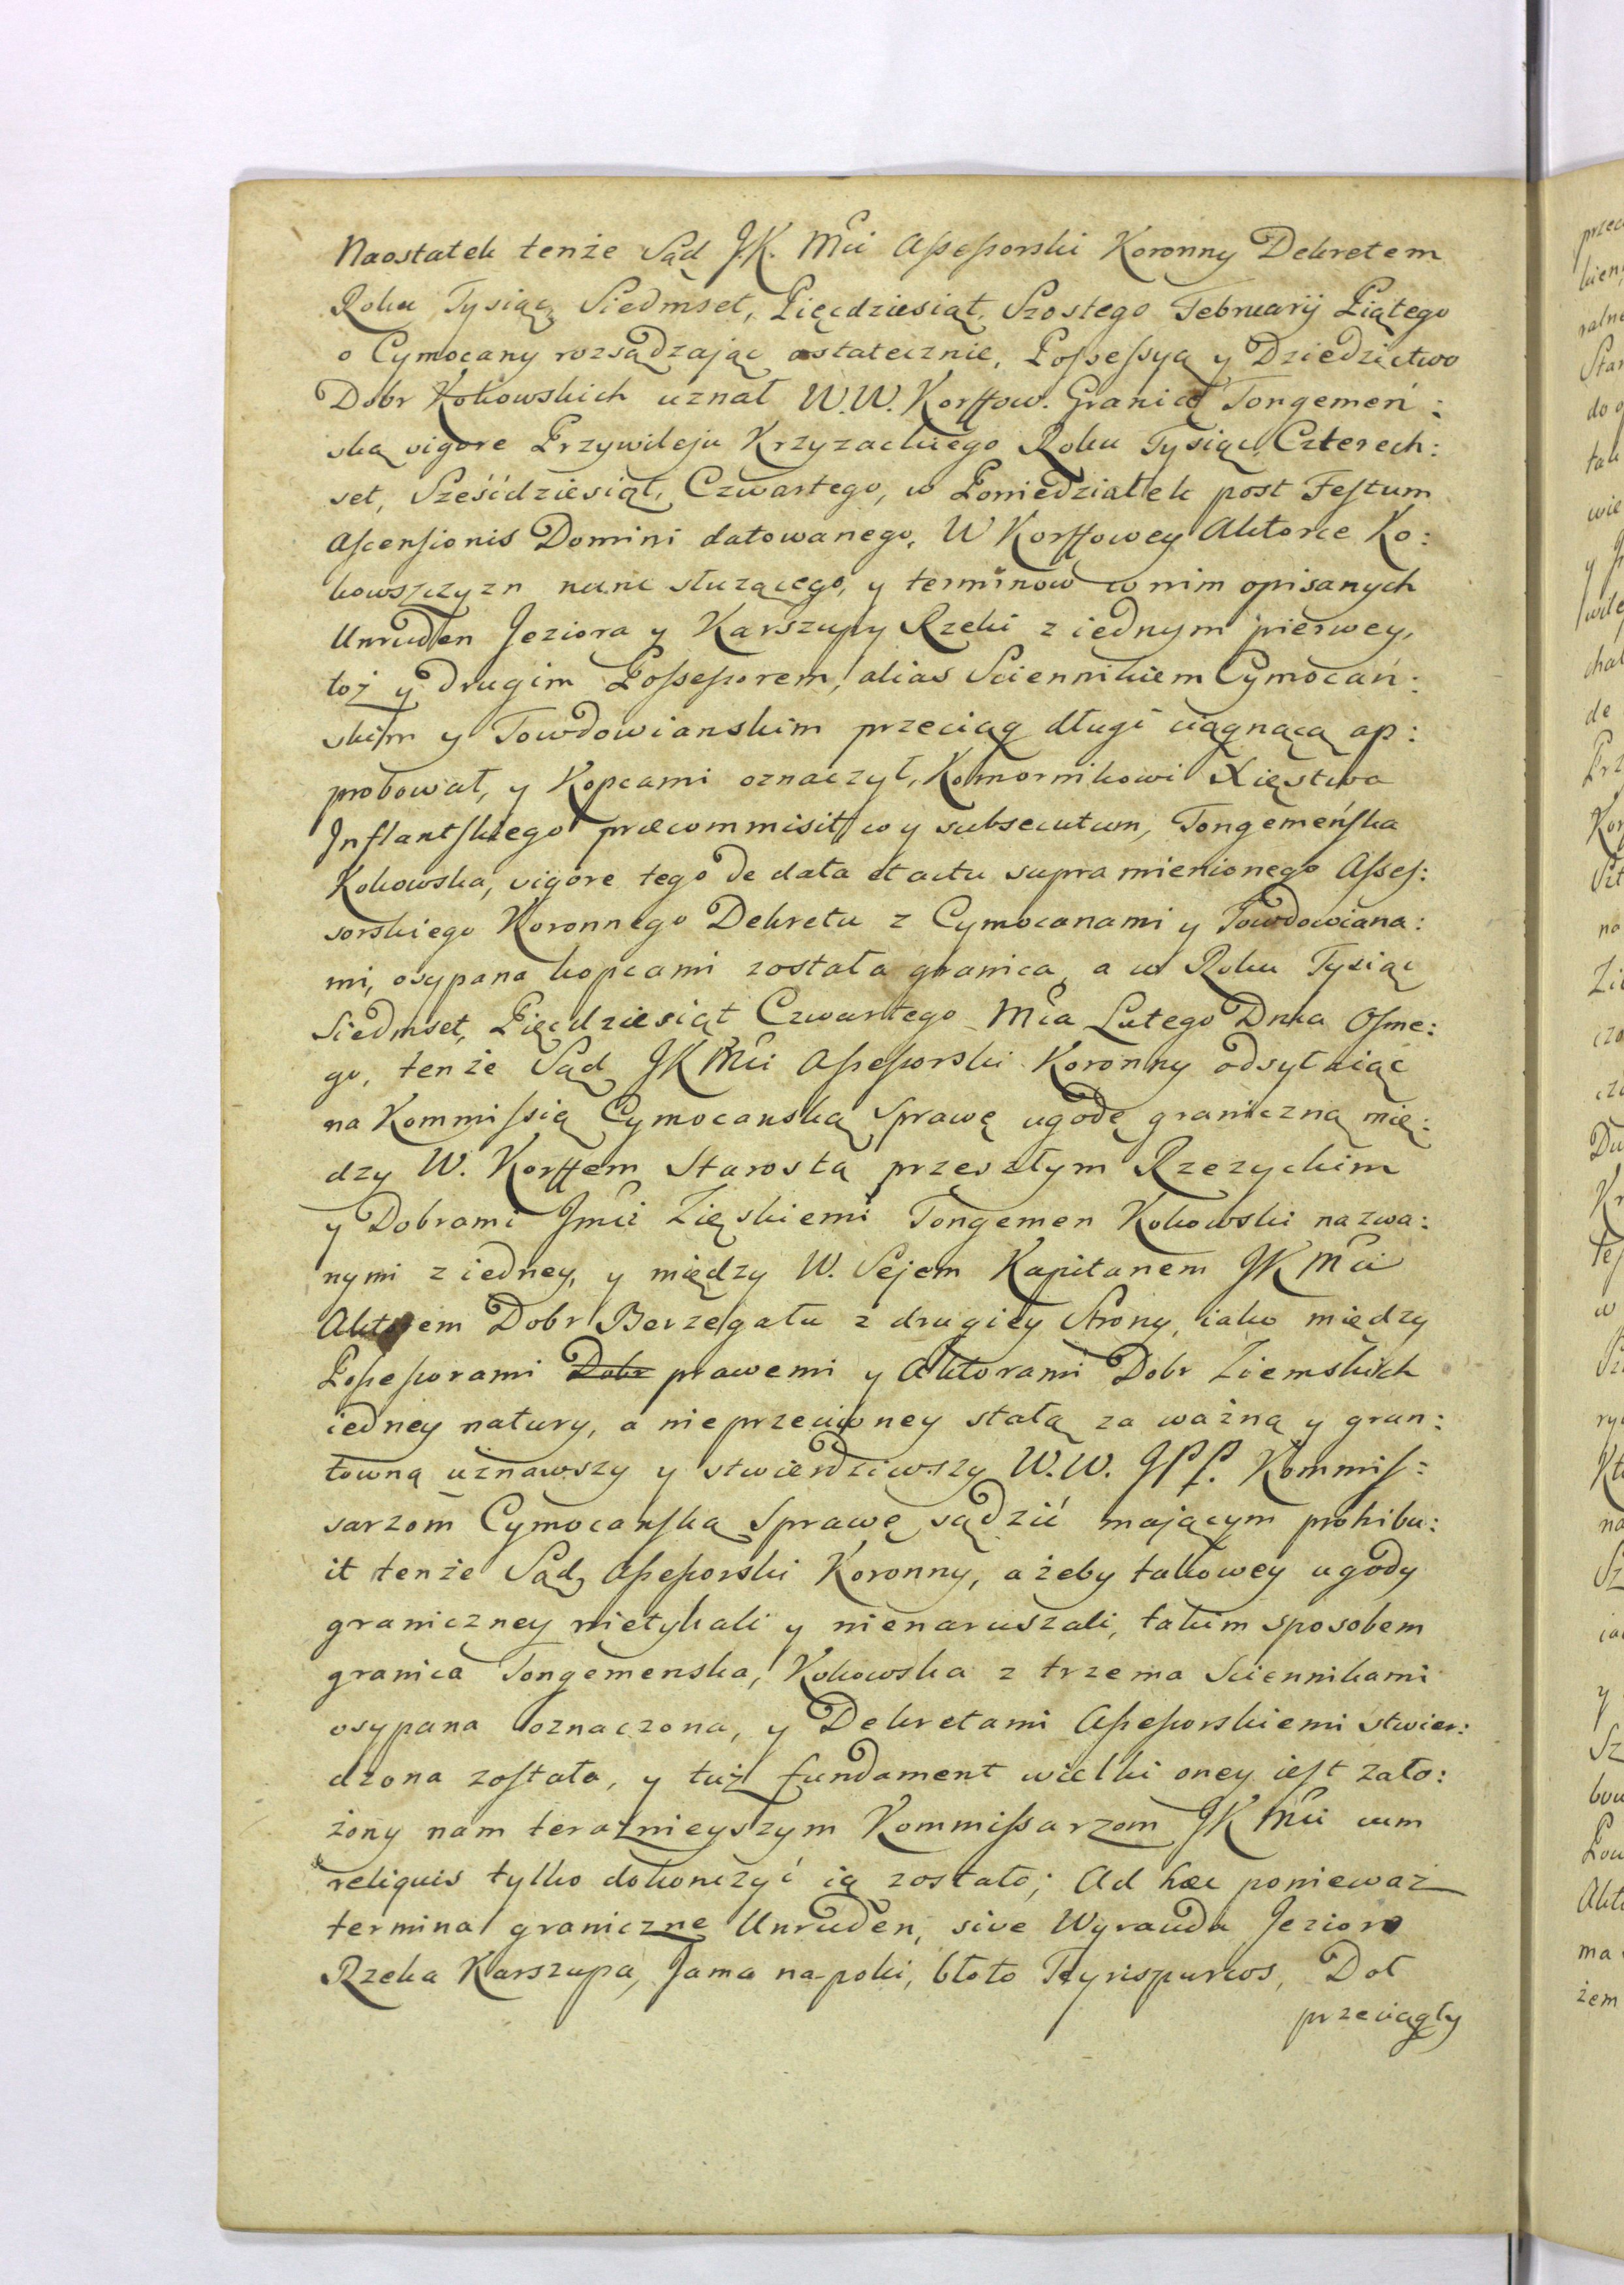 Naostatek tenże Sąd J.K. Mci Assessorski Koronny Dekretem
Roku Tysiąc Siedmset, Pięćdziesiąt, Szostego Februarij Piątego
o Cymocany rozsądzając ostatecznie, Possessyą y Dziedzictwo
Dobr Kokowskich uznał W.W. Korffow. Granicę Tongemeń:
ską vigore Przywileju Krzyzackiego Roku Tysiąc, Czterech:
set, Sześćdziesiąt, Czwartego, w Poniedziałek post Festum
Ascensionis Domini datowanego, W Korffowey Aktorce Ko:
kowszczyzn nunc służącego, y terminow w nim opisanych
Unruden Jeziora y Karszupy Rzeki z iednym pierwey,
toż y drugim Possessorem, alias Sciennikiem Cymocań:
skim y Towdowianskim przeciąg długi ciągnącą ap:
probował, y Kopcami oznaczył, Komornikowi Xięstwa
Inflantskiego præcommisit, co y subsecutum, Tongemeńska
Kokowska, vigore tego de data et actu supra mienionego Asses:
sorskiego Koronnego Dekretu z Cymocanami y Towdowiana:
mi, osypana kopcami została granica, a w Roku Tysiąc
Siedmset, Pięćdziesiąt Czwartego Mca Lutego Dnia Osme:
go, tenże Sąd JK Mci Assessorski Koronny odsyłaiąc
na Kommissią Cymocanską Sprawę ugodę graniczną mię:
dzy W. Korffem Starostą przeszłym Rzezyckim
y Dobrami Jmci Zięskiemi Tongemen Kokowski nazwa:
nymi z iedney, y między W. Sejem Kapitanem JK Mci
Aktorem Dobr Berzegału z drugiey Strony, iako między
Possessorami Dobr prawemi y Aktorami Dobr Ziemskich
iedney natury, a nie przeciwney stałą za ważną y grun:
towną uznawszy y stwierdziwszy W.W. JPP. Kommis:
sarzom Cymocańską Sprawę sądzić mającym prohibu:
it tenże Sąd Assessorski Koronny, ażeby takowey ugody
graniczney nietykali y nienaruszali, takim sposobem
granica Tongemenska, Kokowska z trzema Sciennikami
osypana oznaczona, y Dekretami Assessorskiemi stwier:
dzona została, y tuż fundament wielki oney iest zało:
żony nam teraźnieyszym Kommissarzom JK Mci cum
reliquis tylko dokonczyć ią zostało; Ad hæc ponieważ
termina graniczne Unruden, sive Wyrauda Jezioro
Rzeka Karszupa, Jama na poki, błoto Tyrispurwos, Doł
przeciągły